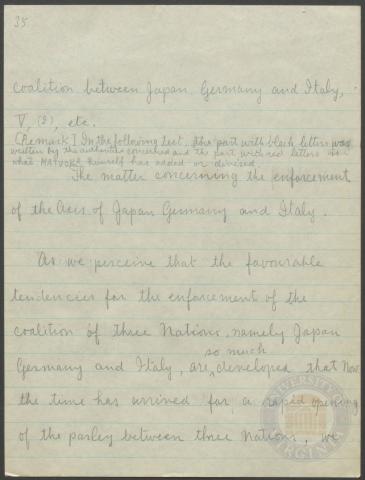 35
coalition between Japan Germany and Italy,
V, (2), etc.
[Remark] In the following text, the part with black letters was
written by the authorities concerned and the part with red letters
what MATUOKA himself has added or
The matter concerning the enforcement
of the Axis of Japan Germany and Italy.
As we perceive that the favourable
tendencies for the enforcement of the
coalition of three Nations, namely Japan
so much
Germany and Italy, are developed that Now
the time has arrived for a rapid opening
of the parley between three Nations, we
UNIVERSITY
VIRGINIA